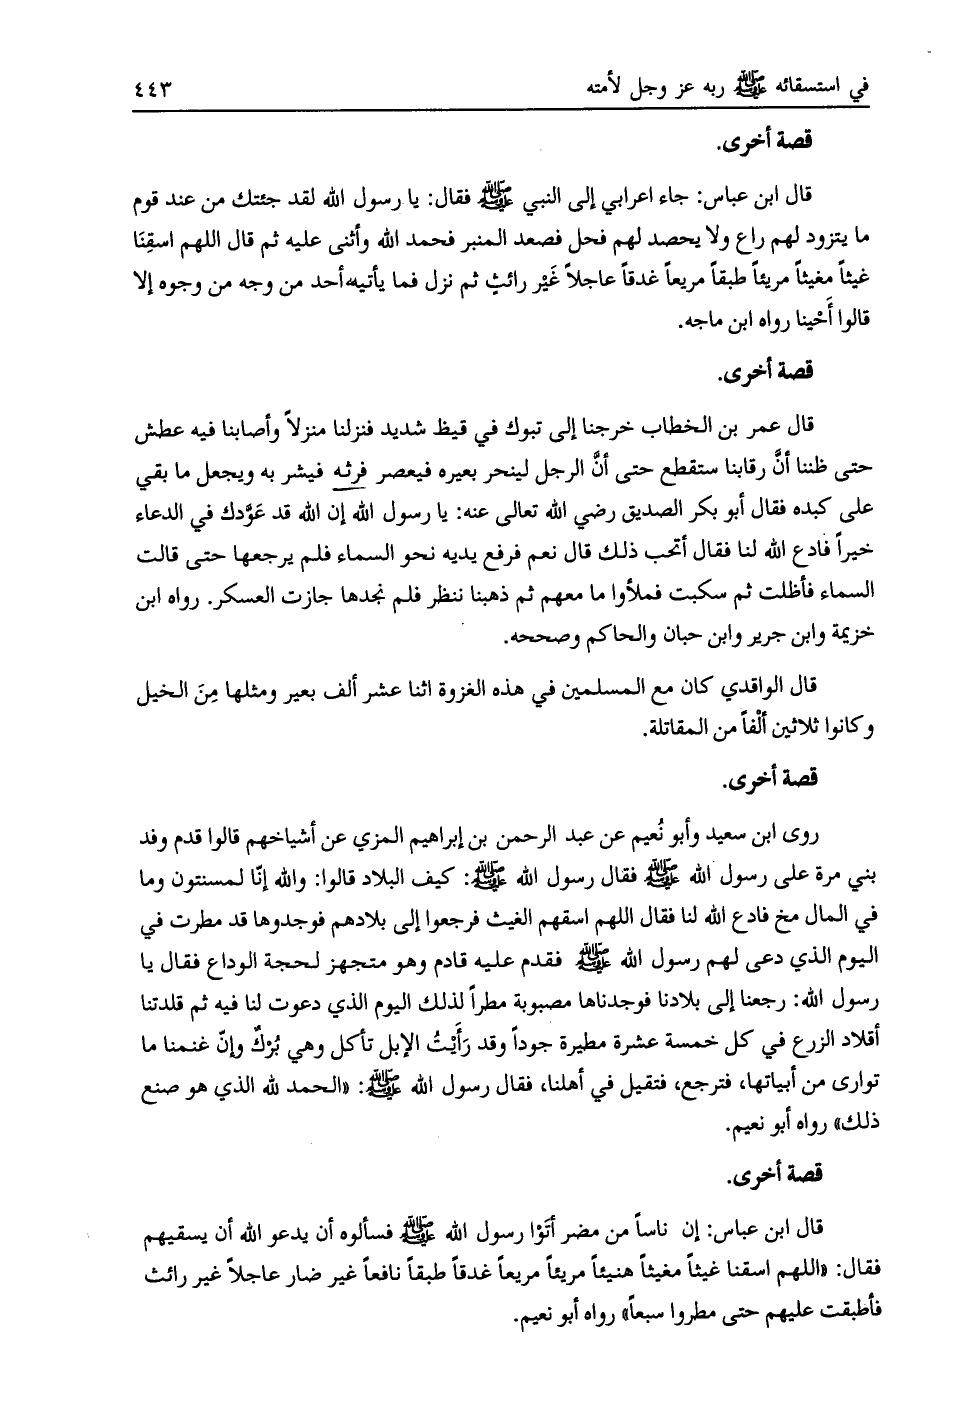 في استسقائه ﷺ ربه عز وجل لأمته ٤٤٣
قصة أخرى.
قال ابن عباس: جاء اعرابي إلى النبي ﷺ فقال: يا رسول الله لقد جئتك من عند قوم
ما يتزود لهم راع ولا يحصد لهم فحل فصعد المنبر فحمد الله وأثنى عليه ثم قال اللهم اسقِنَا
غيثاً مغيثاً مريئاً طبقاً مريعاً غدقاً عاجلاً غَيْر رائثٍ ثم نزل فما يأتيه أحد من وجه من وجوه إلا
قالوا أَحْينا رواه ابن ماجه.
قصة أخرى.
قال عمر بن الخطاب خرجنا إلى تبوك في قيظ شديد فنزلنا منزلاً وأصابنا فيه عطش
حتى ظننا أنَّ رقابنا ستقطع حتى أنَّ الرجل لينحر بعيره فيعصر فرثه فيشر به ويجعل ما بقي
على كبده فقال أبو بكر الصديق رضي الله تعالى عنه: يا رسول الله إن الله قد عَوَّدك في الدعاء
خيراً فادع الله لنا فقال أتحب ذلك قال نعم فرفع يديه نحو السماء فلم يرجعها حتى قالت
السماء فأظلت ثم سكبت فملأوا ما معهم ثم ذهبنا ننظر فلم نجدها جازت العسكر. رواه ابن
خزيمة وابن جرير وابن حبان والحاكم وصححه.
قال الواقدي كان مع المسلمين في هذه الغزوة اثنا عشر ألف بعير ومثلها مِنَ الخيل
وكانوا ثلاثين ألْفاً من المقاتلة.
قصة أخرى.
روى ابن سعيد وأبو نُعيم عن عبد الرحمن بن إبراهيم المزي عن أشياخهم قالوا قدم وفد
بني مرة على رسول الله ﷺ فقال رسول الله ﷺ: كيف البلاد قالوا: والله إنّا لمسنتون وما
في المال مخ فادع الله لنا فقال اللهم اسقهم الغيث فرجعوا إلى بلادهم فوجدوها قد مطرت في
اليوم الذي دعى لهم رسول الله ﷺ فقدم عليه قادم وهو متجهز لحجة الوداع فقال يا
رسول الله: رجعنا إلى بلادنا فوجدناها مصبوبة مطراً لذلك اليوم الذي دعوت لنا فيه ثم قلدتنا
أقلاد الزرع في كل خمسة عشرة مطيرة جوداً وقد رَأَيْتُ الإبل تأكل وهي بُرْكٌ وإنّ غنمنا ما
توارى من أبياتها، فترجع، فتقيل في أهلنا، فقال رسول الله ﷺ: «الحمد لله الذي هو صنع
ذلك» رواه أبو نعيم.
قصة أخرى.
قال ابن عباس: إن ناساً من مضر أتَوْا رسول الله ﷺ فسألوه أن يدعو الله أن يسقيهم
فقال: «اللهم اسقنا غيثاً مغيثاً هنيئاً مريئاً مريعاً غدقاً طبقاً نافعاً غير ضار عاجلاً غير رائث
فأطبقت عليهم حتى مطروا سبعاً» رواه أبو نعيم.